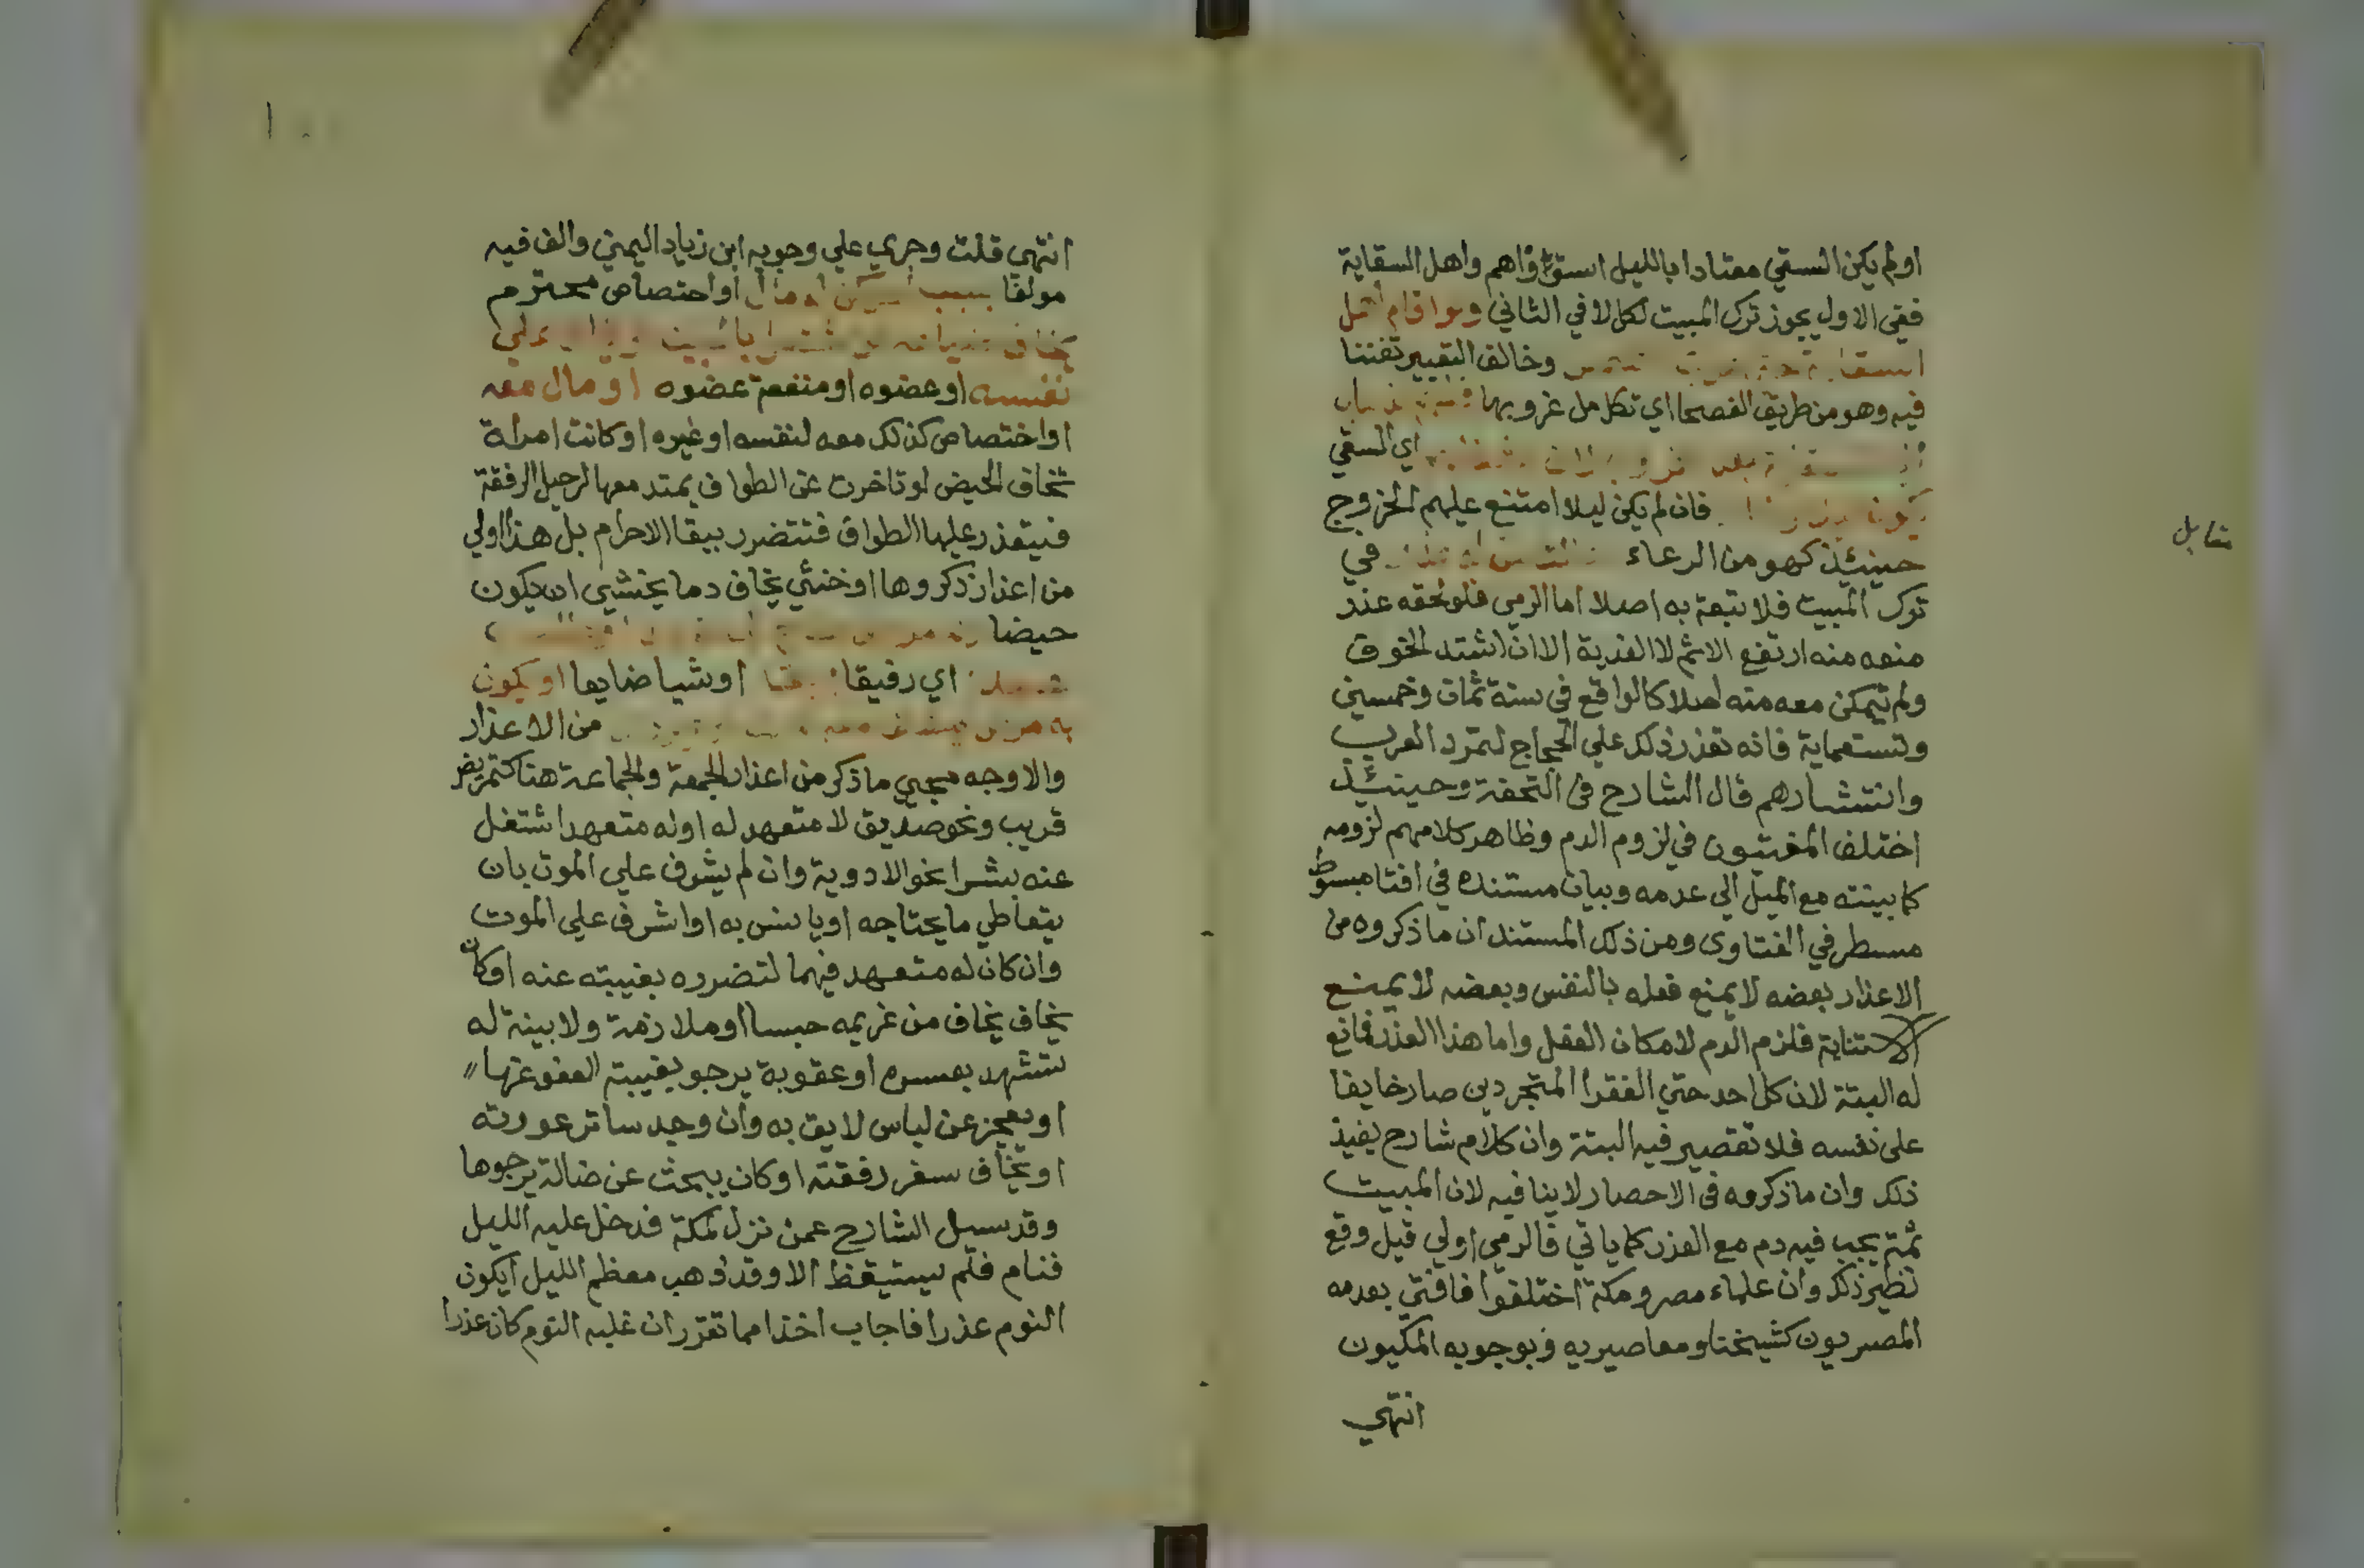 اولم يكن السقي معتادا بالليل استوا هم واهل السقاية
ففي الاول يجوز ترك المبيت لكل لا في الثاني ولو اقام اهل
السقاية وخالف التعبير تفننا
فيه وهو من طريق الفصحا اي تكامل غروبها
اي السقي
فان لم يكن ليلا امتنع عليهم الخروج
حينئذ كهو من الرعاء في
ترك المبيت فلا تبعة به اصلا اما الرمي فلو لحقه عذر
منعه منه ارتفع الاثم لا الفدية الا ان اشتد الخوف
ولم يتمكن معه منه اصلا كالواقع في سنة ثمان وخمسين
وتستعماية فانه تعذر ذلك علي الحجاج لتمرد العرب
وانتشارهم قال الشارح في التحفة وحينئذ
اختلف المفتيون في لزوم الدم وظاهر كلامهم لزومه
كما بينته مع الميل الي عدمه وبيان مستنده في افتا مبسوط
مسطر في الفتاوى ومن ذلك المستند ان ما ذكروه من
الاعذار بعضه لا يمنع فعله بالنفس وبعضه لا يمنع
الاستنابة فلزم الدم لامكان الفعل واما هذا العذر فمانع
له البتة لان كل احد حتي الفقرا المتجردين صار خايفا
على نفسه فلا تقصير فيه البتة وان كلام شارح يفيد
ذلك وان ما ذكروه في الاحصار لا ينافيه لان المبيت
ثمة يجب فيه دم مع العذر كما ياتي فالرمي اولي قيل وقع
نظير ذلك وان علماء مصر ومكة اختلفوا فافتي بعدمه
المصريون كشيخنا ومعاصريه وبوجوبه المكيون
انتهي
مقابل
انتهي قلت وجري علي وجوبه ابن زياد اليمني والف فيه
مولفا بسبب او مال او اختصاص محترم
يخاف علي
نفسه او عضوه او منفعة عضوه او مال معه
او اختصاص كذلك معه لنفسه او غيره او كانت امراة
تخاف الحيض لو تاخرت عن الطواف يمتد معها لرحيل الرفقة
فيتعذر عليها الطواف فتتضرر ببقا الاحرام بل هذا اولي
من اعذار ذكروها او خنثي يخاف دما يخشي ان يكون
حيضا
اي رفيقا او شيا ضايعا او يكون
به مرض من الاعذار
والاوجه مجي ما ذكر من اعذار الجمعة والجماعة هنا كتمريض
قريب ونحو صديق لا متعهد له او له متعهد اشتغل
عنه بشرا نحو الادوية وان لم يشرف علي الموت بان
يتعاطي ما يحتاجه او يانس به او اشرف علي الموت
وان كان له متعهد فيهما لتضرره بغيبته عنه او كان
يخاف يخاف من غريمه حبسا او ملازمة ولا بينة له
تشهد بعسره او عقوبة يرجو بغيبته العفو عنها
او يعجز عن لباس لايق به وان وجد ساتر عورته
او يخاف سفر رفقته او كان يبحث عن ضالة يرجوها
وقد سيل الشارح عمن نزل لمكة فدخل عليه الليل
فنام فلم يستيقظ الا وقد ذهب معظم الليل ايكون
النوم عذرا فاجاب اخذا مما تقرر ان غلبه النوم كان عذرا